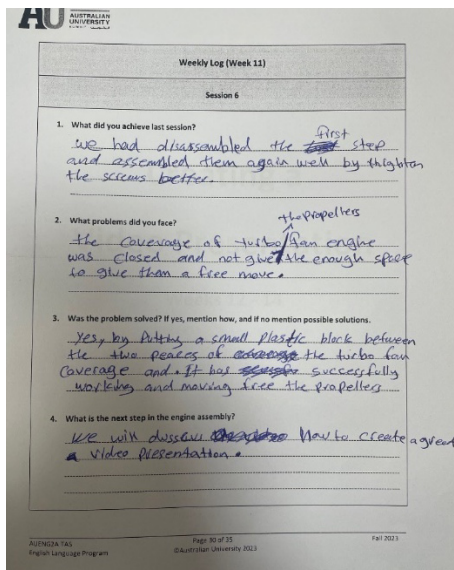 AU AUSTRALIAN
UNIVERSITY
Weekly Log (Week 11)
Session 6
1. What did you achieve last session?
first
we had disassembled the step
and assembled them again well by thighten
the screws better.
2. What problems did you face?
the propellers
the coverage of turbo fan engine
was closed and not give the enough space
to give than a free move.
3. Was the problem solved? If yes, mention how, and if no mention possible solutions.
Yes, by Putting a small Plastic block between
the two peaces of the turbo fan
coverage and. It has successfully
working and moving free the propellers
4. What is the next step in the engine assembly?
we will How to create a great
video presentation.
AUENG2A TAS
English Language Program
Page 30 of 35
©Australian University 2023
Fall 2023